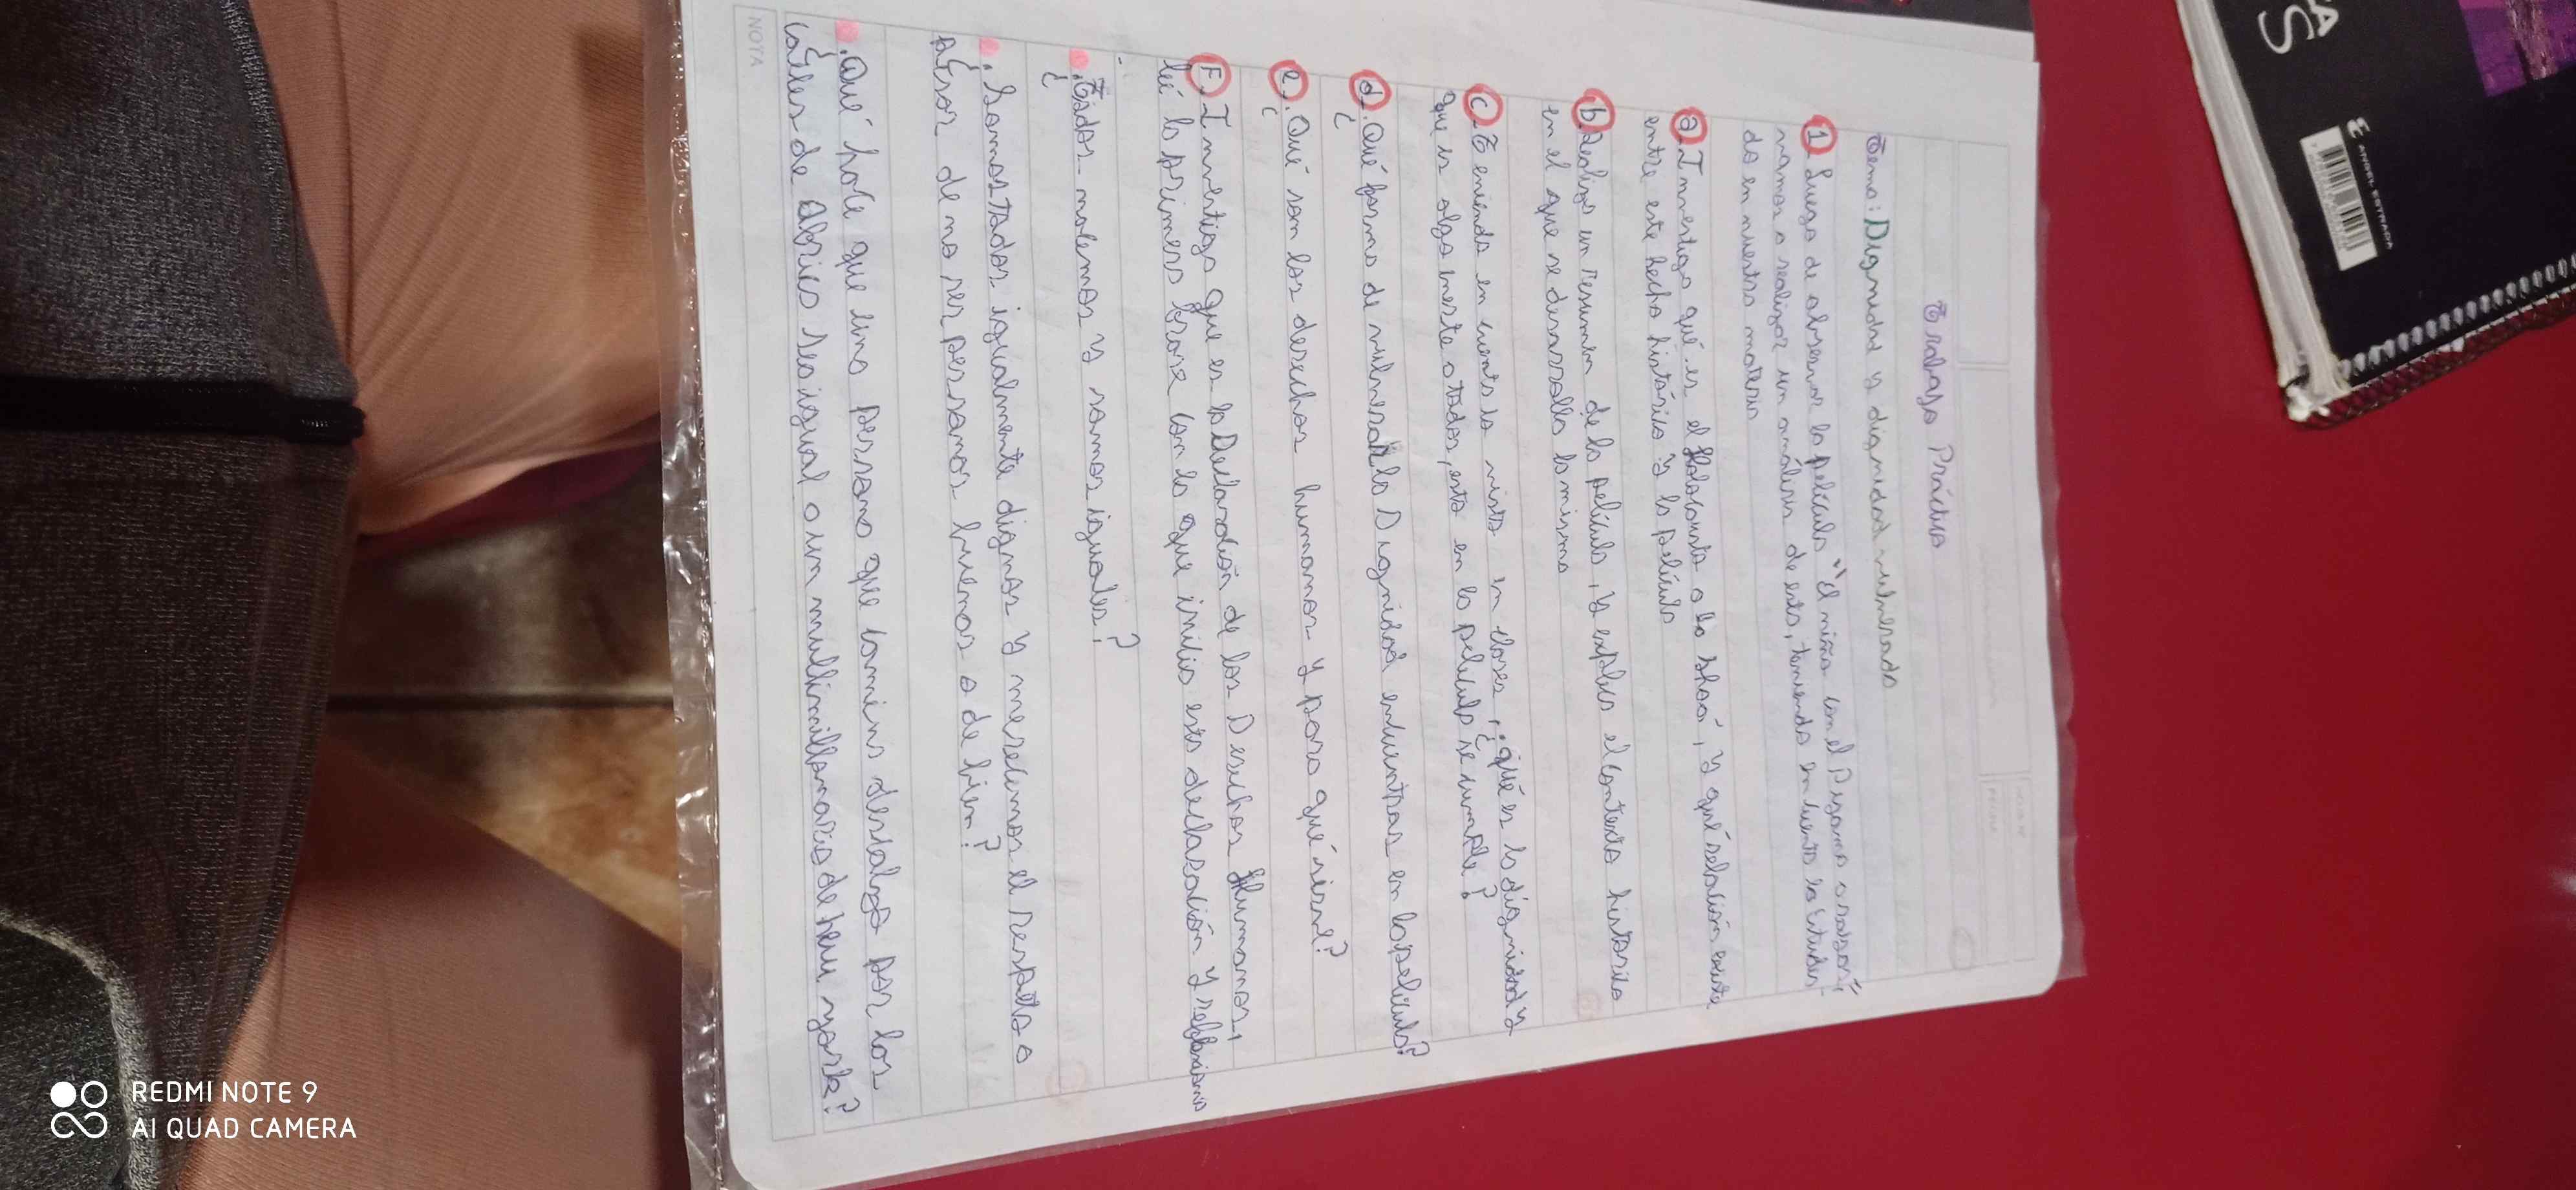 Trabajo Práctico
Tema: Dignidad y dignidad vulnerada
1 Luego de observar la película "El niño con el Pijama a rayas",
vamos a realizar un análisis de esta, teniendo en cuenta lo estudia-
do en nuestra materia
a. Investiga qué es el Holocausto o la shoá, y qué relación existe
entre este hecho histórico y la película
b. Realiza un resumen de la película, y explica el contexto histórico
en el que se desarrolla la misma
c. Teniendo en cuenta lo visto en clases, ¿qué es la dignidad y
que es algo inerte a todos, esto en la película se cumple?
d. ¿Qué forma de vulnerar la Dignidad encuentras en la película?
e. ¿Qué son los derechos humanos y para qué sirve?
F. Investiga que es la Declaración de los Derechos Humanos,
leé la primera frase con la que inicia esta declaración y reflexiona
:
. ¿Todos valemos y somos iguales?
. ¿Somos todos igualmente dignos y merecemos el respeto a
pesar de no ser personas buenas o de bien?
. ¿Qué hace que una persona que camina descalza por las
calles de África sea igual a un multimillonario de New york?
NOTA
REDMI NOTE 9
AI QUAD CAMERA
ANGEL ESTRADA